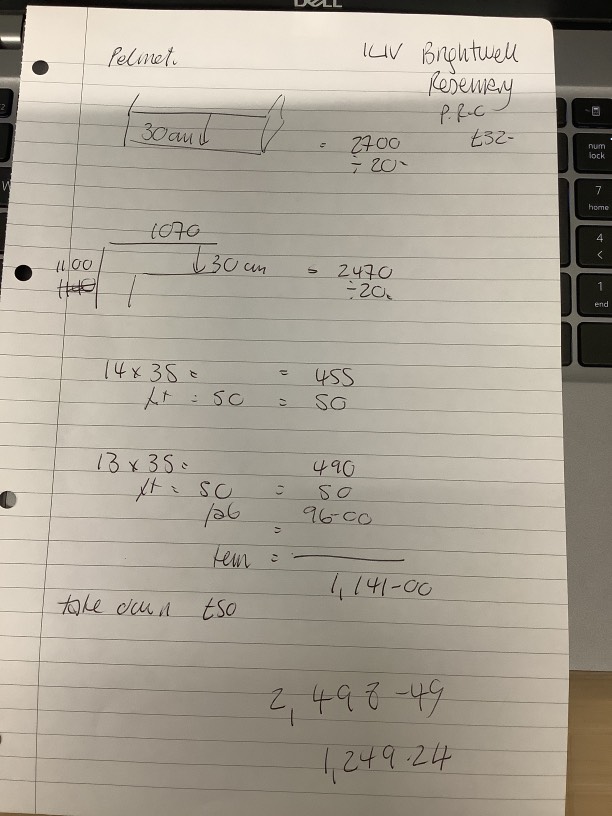 DELL
Pelmet.
Brightwell
Rosemary
P.R.C
£32-
30cm
= 2700
÷ 20.
1070
1100
30 cm
= 2470
÷20.
14 x 35 = = 455
= 50 = 50
13 x 35 = 490
= 50 = 50
96-00
=
=
1,141-00
take down £50
2,498-49
1,249.24
num
lock
7
home
4
<
1
end